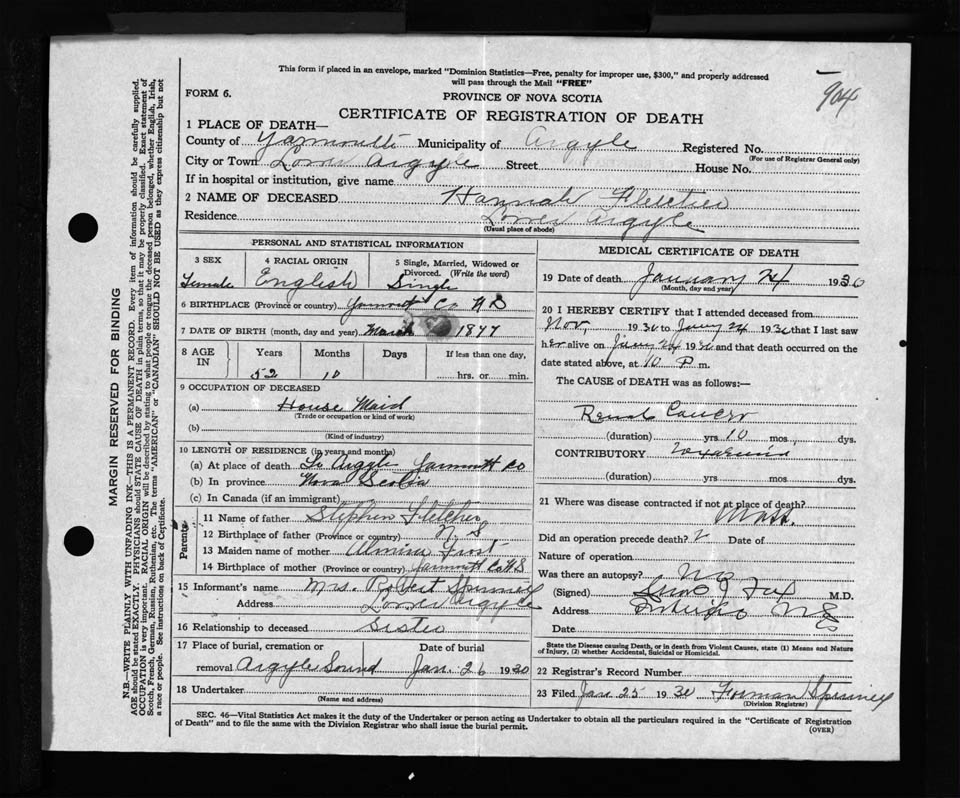 This form if placed in an envelope, marked "Dominion Statistics—Free, penalty for improper use, $300," and properly addressed
will pass through the Mail "FREE"
904
FORM 6.
PROVINCE OF NOVA SCOTIA
CERTIFICATE OF REGISTRATION OF DEATH
1 PLACE OF DEATH—
County of Yarmouth Municipality of Argyle Registered No.
(For use of Registrar General only)
City or Town Lower Argyle Street House No.
If in hospital or institution, give name
2 NAME OF DECEASED Hannah Fletcher
Residence Lower Argyle
(Usual place of abode)
PERSONAL AND STATISTICAL INFORMATION
3 SEX Female
4 RACIAL ORIGIN English
5 Single, Married, Widowed or Divorced. (Write the word) Single
6 BIRTHPLACE (Province or country) Yarmouth Co N S
7 DATE OF BIRTH (month, day and year) March 1877
8 AGE IN Years Months Days If less than one day,
52 10 hrs. or min.
9 OCCUPATION OF DECEASED
(a) House Maid
(Trade or occupation or kind of work)
(b)
(Kind of industry)
10 LENGTH OF RESIDENCE (in years and months)
(a) At place of death Lr Argyle Yarmouth Co
(b) In province Nova Scotia
(c) In Canada (if an immigrant)
Parents
11 Name of father Stephen Fletcher
12 Birthplace of father (Province or country) N S
13 Maiden name of mother Almira Frost
14 Birthplace of mother (Province or country) Yarmouth Co N S
15 Informant's name Mrs. Robert Spinney
Address Lower Argyle
16 Relationship to deceased Sister
17 Place of burial, cremation or removal Argyle Sound
Date of burial Jan. 26 1930
18 Undertaker
(Name and address)
MEDICAL CERTIFICATE OF DEATH
19 Date of death January 24 1930
(Month, day and year)
20 I HEREBY CERTIFY that I attended deceased from
Nov. 1930 to Jany 24 1930 that I last saw
her alive on Jany 24 1930 and that death occurred on
date stated above, at 10 P. m.
The CAUSE of DEATH was as follows:—
Renal Cancer
(duration) yrs 10 mos. dys.
CONTRIBUTORY Toxaemia
(duration) yrs. mos. dys.
21 Where was disease contracted if not at place of death?
Mass.
Did an operation precede death? Date of
Nature of operation
Was there an autopsy? No
(Signed) Fox M.D.
Address Pubnico N S
Date
State the Disease causing Death, or in death from Violent Causes, state (1) Means and Nature
of Injury, (2) whether Accidental, Suicidal or Homicidal.
22 Registrar's Record Number
23 Filed Jan 25 1930 Forman Spinney
(Division Registrar)
SEC. 46—Vital Statistics Act makes it the duty of the Undertaker or person acting as Undertaker to obtain all the particulars required in the "Certificate of Registration
of Death" and to file the same with the Division Registrar who shall issue the burial permit.
(OVER)
MARGIN RESERVED FOR BINDING
N.B.—WRITE PLAINLY WITH UNFADING INK—THIS IS A PERMANENT RECORD. Every item of information should be carefully supplied.
AGE should be stated EXACTLY. PHYSICIANS should STATE CAUSE OF DEATH in plain terms, so that it may be properly classified. Exact statement of
OCCUPATION is very important. RACIAL ORIGIN will be described by stating to what people or tongue the deceased person belonged, whether English, Irish,
Scotch, French, German, Russian, Ruthenian, etc. The terms "AMERICAN" or "CANADIAN" SHOULD NOT BE USED as they express citizenship but not
a race or people. See instructions on back of Certificate.